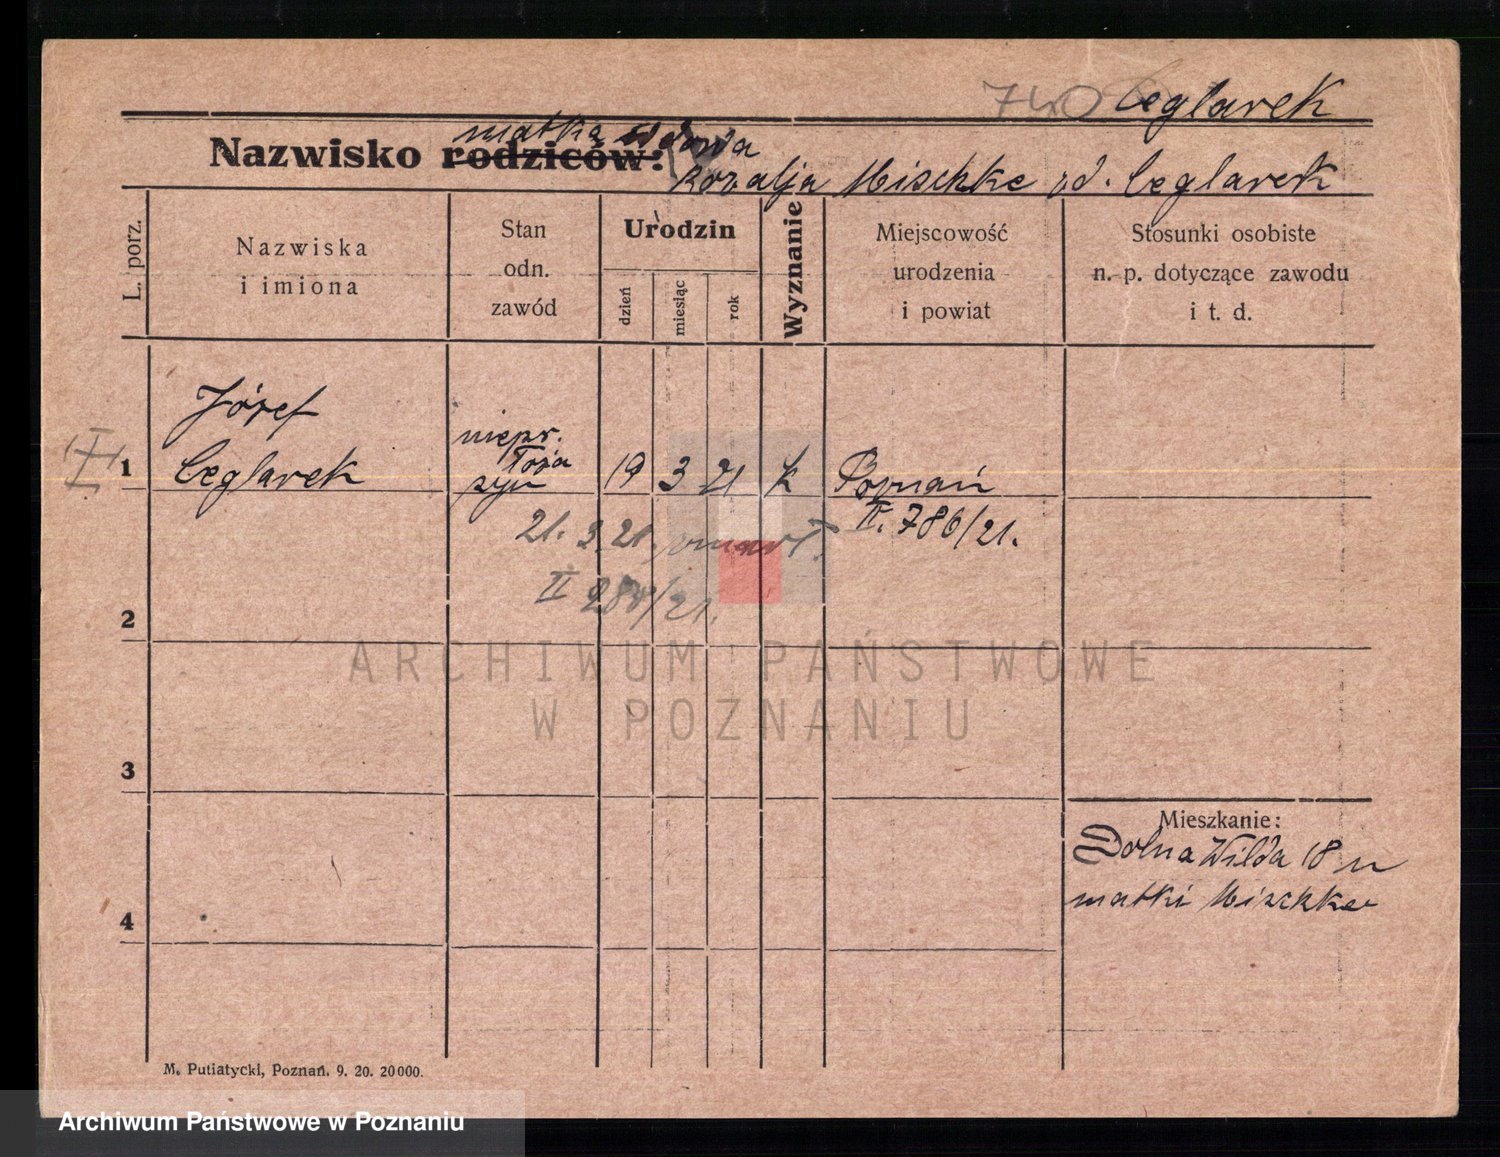 740 Ceglarek
matka wdowa
Nazwisko rodziców:
Rozalja Mischke zd. Ceglarek
L. porz.
Nazwiska
i imiona
Stan
odn.
zawód
Urodzin
dzień
miesiąc
rok
Wyznanie
Miejscowość
urodzenia
i powiat
Stosunki osobiste
n. p. dotyczące zawodu
i t. d.
Józef
niepr.
1 Ceglarek
syn 19 3 21 k Poznań
II. 786/21.
21. 3. 21. zmarł.
2
ARCHIWUM PAŃSTWOWE
W POZNANIU
3
Mieszkanie:
Dolna Wilda 18 u
matki Mischke
4
M. Putiatycki, Poznań. 9. 20. 20000.
Archiwum Państwowe w Poznaniu